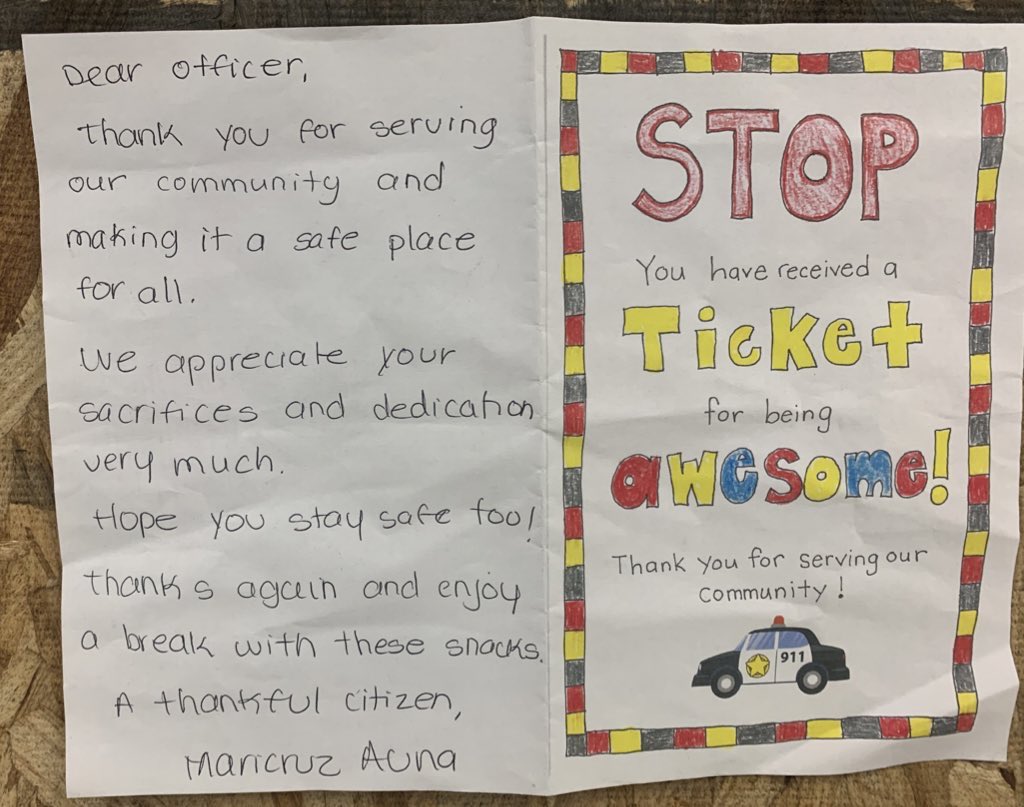 Dear officer,
Thank you for serving
our community and
making it a safe place
for all.
We appreciate your
sacrifices and dedication
very much.
Hope you stay safe too!
thanks again and enjoy
a break with these snacks.
A thankful citizen,
Maricruz Acuna
STOP
You have received a
Ticket
for being
awesome!
Thank you for serving our
community!
911